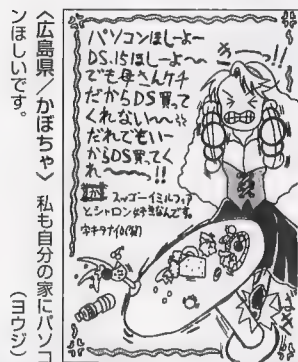 パソコンほしーよー
DS.15ほしーよ～～
でも母さんケチ
だからDS買って
くれない～～
だれでもいー
からDS買ってく
れ～～～っ!!
スッゴーイミルフィア
とシャロン好きなんです。
〈広島県／かぼちゃ〉 私も自分の家にパソコ
ンほしいです。 (ヨウジ)